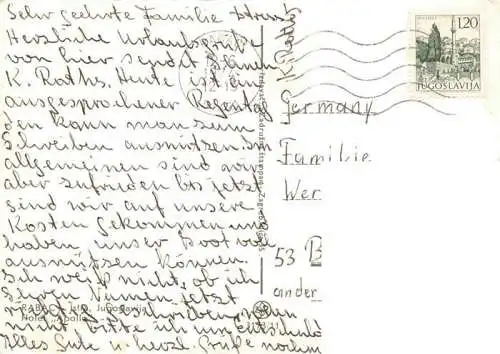 Sehr geehrte Familie
Herzliche Urlaubsgrüße
von hier sendet Ihnen
K. Raths. Heute ist ein
ausgesprochener Regentag
den kann man zum
Schreiben ausnützen. Im
allgemeinen sind wir
aber zufrieden bis jetzt
sind wir auf unsere
Kosten gekommen und
haben unser Boot viel
ausnützen können.
Ich weiß nicht, ob ich
Ihren Namen jetzt
richtig geschrieben, wenn
nicht, bitte ich um
Alles Gute u. herzl. Grüße nochm
K. Raths
RABAC Jugoslavija
Hotel "Apollo"
1.20
JUGOSLAVIJA
Germany
Familie
Wer
53 B
ander